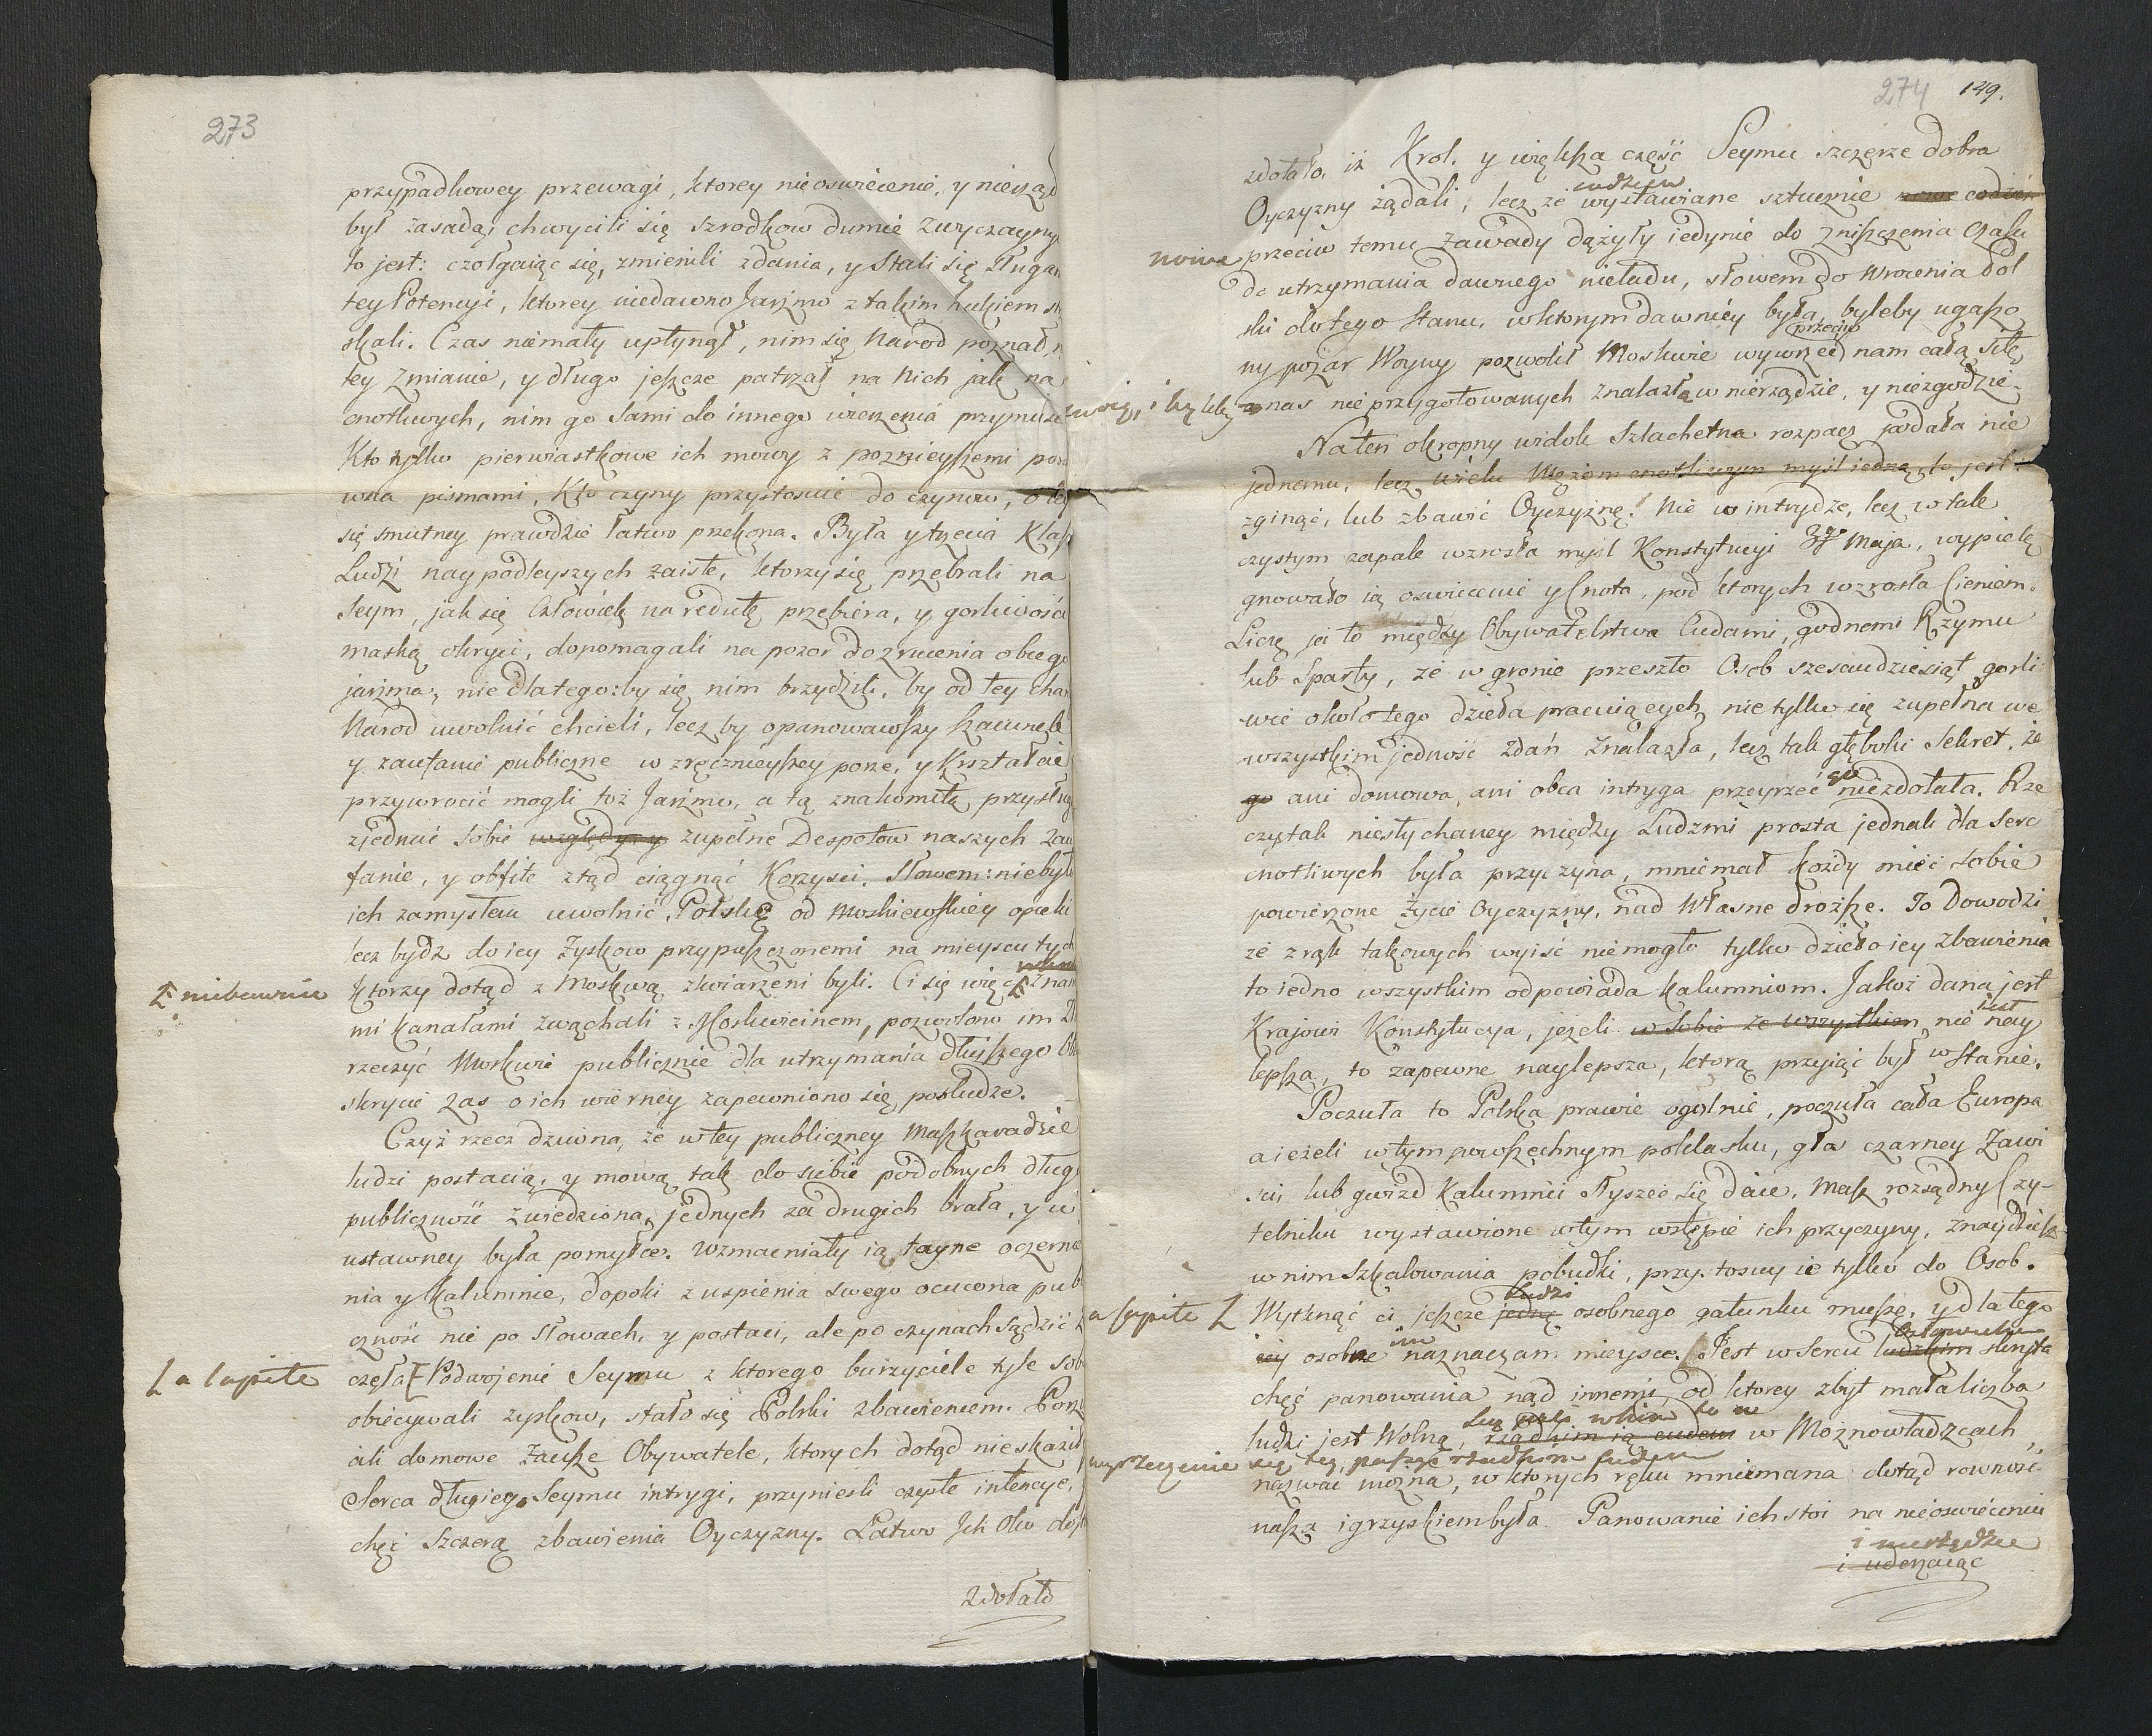 273
przypadkowey przewagi, ktorey nieoswiecenie, y nierząd
był zasadą, chwycili się szrodkow dumie zwyczayny
to jest: czołgaiąc się, zmienili zdania, y stali się sługa
tey Potencyi, ktorey niedawno Jarzmo z takim hukiem
skali. Czas niemały upłynął, nim się Narod poznał n
tey zmianie, y długo jeszcze patrzał na Nich jak na
cnotliwych, nim go sami do innego wierzenia przymusi
Kto tylko pierwiastkowe ich mowy z poznieyszemi poro
wna pismami, Kto czyny przystosuie do czynow, o tey
się smutney prawdzie łatwo przekona. Była y trzecia Klass
Ludzi naypodleyszych zaiste, ktorzy się przebrali na
Seym, jak się Człowiek na redutę przebiera, y gorliwości
maską okryci, dopomagali na pozor do zrucenia obcego
jarzma, nie dla tego: by się nim brzydzili, by od tey
Narod uwolnić chcieli, lecz by opanowawszy szacunek
y zaufanie publiczne w zręcznieyszey porze, y kształcie
przywrocić mogli toż Jarzmo, a tą znakomitą przysług
zjednać sobie względy y zupełne Despotow naszych zau
fanie, y obfite ztąd ciągnąć Korzysci. Słowem: nie było
ich zamysłem uwolnić Polskę od Moskiewskiey opieki
lecz bydz do iey zyskow przypuszczonemi na mieyscu tych
niebawnie
ktorzy dotąd z Moskwą skoiarzeni byli. Ci się więc znan
mi kanałami zwąchali z Moskwicinem, pozwolono im
rzeczyć Moskwie publicznie dla utrzymania dłuższego
skrycie zas o ich wierney zapewniono się posłudze.
Czyż rzecz dziwna, że w tey publiczney Maszkaradzie
ludzi postacią, y mową tak do siebie podobnych dług
publiczność zwiedziona, jednych za drugich brała, y w
ustawney była pomyłce. Wzmacniały ią tayne oczernie
nia y kalumnie, dopoki z uspienia swego ocucona pub
czność nie po słowach, y postaci, ale po czynach sądzić
a capite
częła. Podwojenie Seymu z ktorego burzyciele tyle sob
obiecywali zyskow, stało się Polski zbawieniem. Porzu
cili domowe zacisze Obywatele, ktorych dotąd nie skaziły
Serca długiego Seymu intrygi, przyniesli czyste intencye,
chęć szczerą zbawienia Oyczyzny. Łatwo Ich oko
zdołało
274 149.
zdołało, iż Krol. y większa część Seymu szczerze dobra
codzien
Oyczyzny żądali, lecz że wystawiane sztucznie nowe codzien
nowe przeciw temu zawady dążyły iedynie do zniszczenia Czasu
do utrzymania dawnego nieładu, słowem do wrocenia Pol
ski do tego stanu, w ktorym dawniey była, byleby ugaszo
przeciw
ny pożar Woyny pozwolił Moskwie wywrzeć nam całą siłę,
nas nieprzygotowanych znalazłą w nierządzie, y niezgodzie.
Na ten okropny widok szlachetna rozpacz podała nie
jednemu, lecz wielu Mężom cnotliwym myśl iedną, to jest:
zginąć, lub zbawić Oyczyznę! Nie w intrydze, lecz w tak
czystym zapale wzrosła myśl Konstytucyi 3go Maja, wypielę
gnowało ią oswiecenie y Cnota, pod ktorych wzrosła Cieniem.
Liczę ja to między Obywatelstwa Cudami, godnemi Rzymu
lub Sparty, że w gronie przeszło Osob szescudziesiąt gorli
wie około tego dzieła pracuiących, nie tylko się zupełna we
wszystkim jedność zdań znalazła, lecz tak głęboki Sekret, że
go
go ani domowa, ani obca intryga przeyrzeć niezdołała. Rze
czy tak niesłychaney między Ludzmi prosta jednak dla Serc
cnotliwych była przyczyna, mniemał każdy mieć sobie
powierzone życie Oyczyzny, nad Własne droższe. To Dowodzi
że z rąk takowych wyjsć niemogło tylko dzieło iey zbawienia
to iedno wszystkim odpowiada kalumniom. Jakoż dana jest
jest
Krajowi Konstytucya, jeżeli w sobie ze wszystkim nie nay
lepszą, to zapewne naylepsza, ktorą przyjąć był w stanie.
Poczuła to Polska prawie ogolnie, poczuła cała Europa
a ieżeli w tym powszechnym poklasku, gła czarney Zawi
sci lub gwizd Kalumnii słyszeć się daie, Masz rozsądny Czy-
telniku wystawione w tym wstępie ich przyczyny, znaydziesz
w nim szkalowania pobudki, przystosuy ie tylko do Osob.
ludzi
a capite Wytknąć ci jeszcze jedną osobnego gatunku muszę, y dla tego
im człowieka
iey osobne naznaczam mieysce. Jest w sercu ludzkim skryta
chęć panowania nad innemi, od ktorey zbyt mała liczba
ludzi jest Wolną, rzadkim ią cudem w Możnowładzcach
nazwać można, w ktorych ręku mniemana dotąd rowność
nasza igrzyskiem była. Panowanie ich stoi na nieoswieceniu
i nierządzie
i uderzaiąc